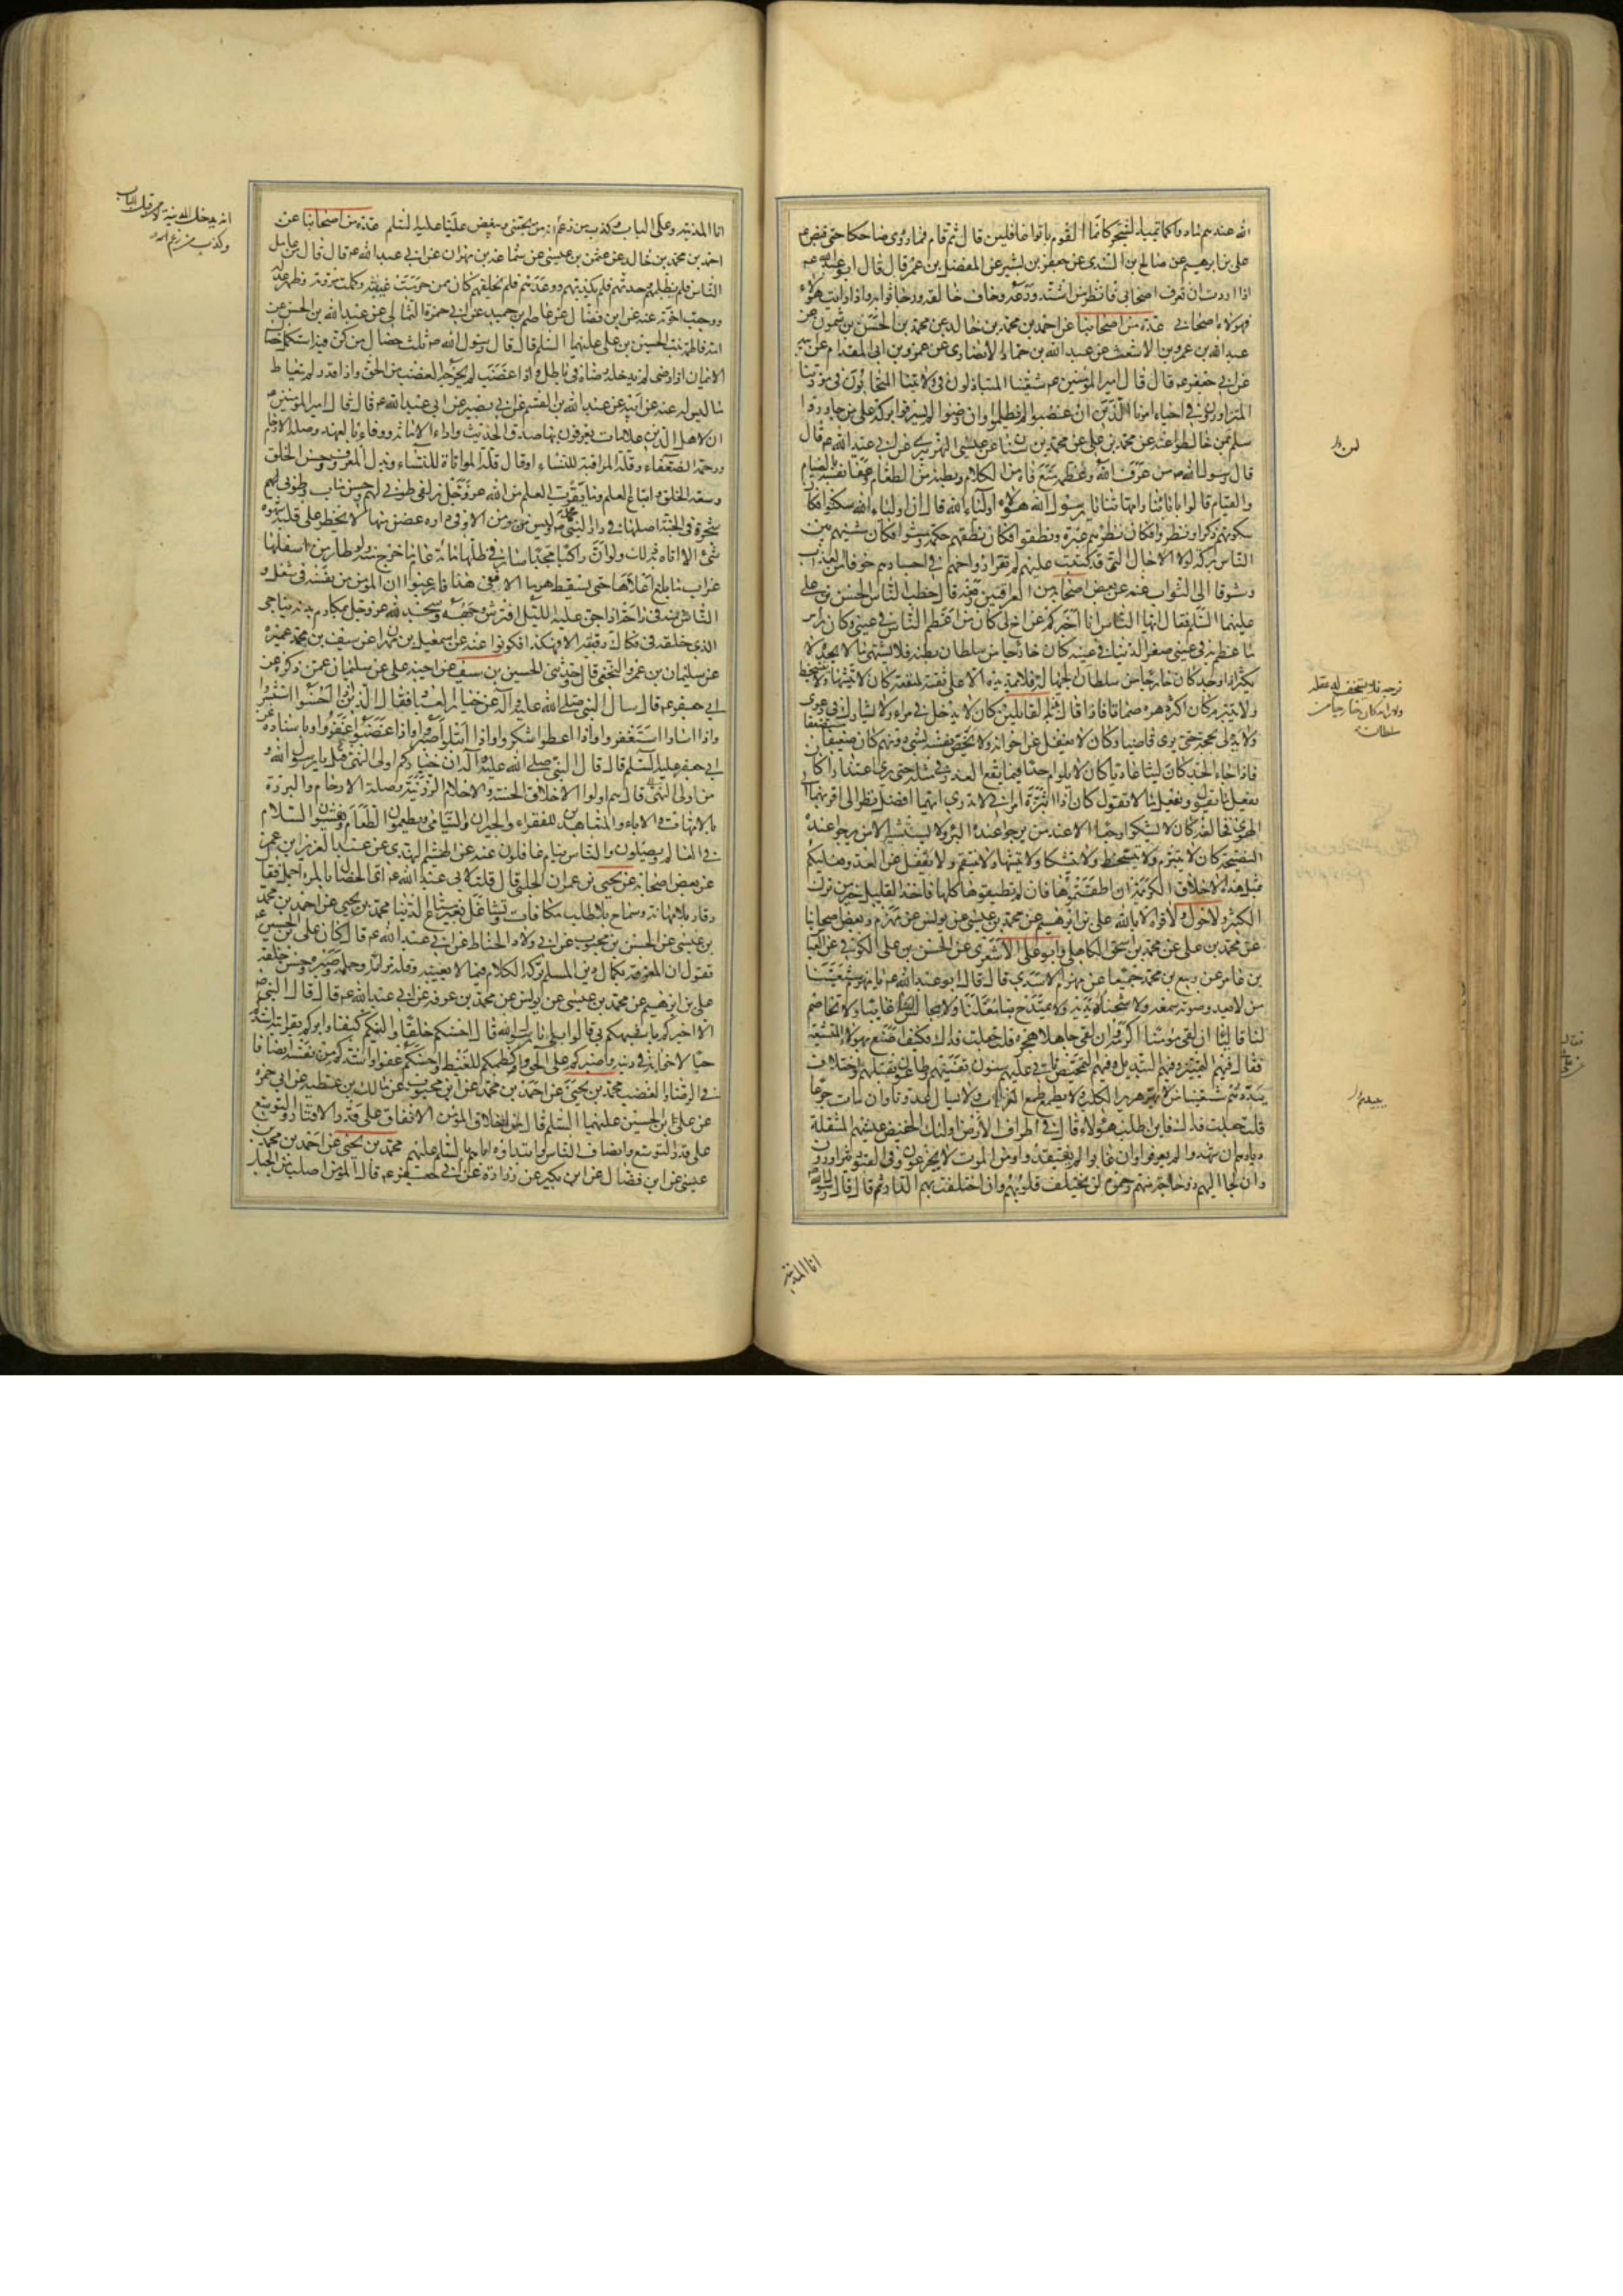 الله عندهم مادوا كما يميد الشجر كانما القوم باتوا غافلين قال ثم قام فما رؤى ضاحكا حتى قبض ع
على بن ابرهيم عن صالح بن السندى عن جعفر بن بشير عن المفضل بن عمر قال قال ابو عبد الله ع
اذا اردت ان تعرف اصحابى فانظر من اشتد ورعه وخاف خالقه ورجا ثوابه واذا رايت هؤلاء
فهؤلاء اصحابى عدة من اصحابنا عن احمد بن محمد بن خالد عن محمد بن الحسن بن شمون عن
عبد الله بن عمرو بن الاشعث عن عبد الله بن حماد الانصارى عن عمرو بن ابى المقدام عن ابيه
عن ابى جعفر ع قال قال امير المؤمنين ع شيعتنا المتباذلون فى ولايتنا المتحابون فى مودتنا
المتزاورون فى احياء امرنا الذين ان غضبوا لم يظلموا وان رضوا لم يسرفوا بركة على من جاوروا
سلم لمن خالطوا عنه عن محمد بن على عن محمد بن سنان عن عيسى النهريرى عن ابى عبد الله ع قال
قال رسول الله ص من عرف الله وعظمه منع فاه من الكلام وبطنه من الطعام وعفا نفسه بالصيام
والقيام قالوا بابائنا وامهاتنا يا رسول الله هؤلاء اولياء الله قال ان اولياء الله سكتوا فكان
سكوتهم ذكرا ونظروا فكان نظرهم عبرة ونطقوا فكان نطقهم حكمة ومشوا فكان مشيهم بين
الناس بركة لولا الاجال التى قد كتبت عليهم لم تقر ارواحهم فى اجسادهم خوفا من العذاب
وشوقا الى الثواب عنه عن بعض اصحابه من العراقيين رفعه قال خطب الناس الحسن بن على
عليهما السلم فقال ايها الناس انا اخبركم عن اخ لى كان من اعظم الناس فى عينى وكان راس
ما عظم به فى عينى صغر الدنيا فى عينه كان خارجا من سلطان بطنه فلا يشتهى ما لا يجد ولا
يكثر اذا وجد كان خارجا من سلطان الجهالة فلا يمد يده الا على ثقة لمنفعة كان لا يتشهى ولا يتسخط
ولا يتبرم كان اكثر دهره صماتا فاذا قال بذ القائلين كان لا يدخل فى مراء ولا يشارك فى دعوى
ولا يدلى بحجة حتى يرى قاضيا وكان لا يغفل عن اخوانه ولا يخص نفسه بشىء دونهم كان ضعيفا مستضعفا
فاذا جاء الجد كان ليثا عاديا كان لا يلوم احدا فيما يقع العذر فى مثله حتى يرى اعتذارا كان
يفعل ما يقول ويفعل ما لا يقول كان اذا ابتزه امران لا يدرى ايهما افضل نظر الى اقربهما الى
الهوى فخالفه كان لا يشكو وجعا الا عند من يرجو عنده البرء ولا يستشير الا من يرجو عنده
النصيحة كان لا يتبرم ولا يتسخط ولا يتشكى ولا يتشهى ولا ينتقم ولا يغفل عن العدو فعليكم
بمثل هذه الاخلاق الكريمة ان اطقتموها فان لم تطيقوها كلها فاخذ القليل خير من ترك
الكثير ولا حول ولا قوة الا بالله على بن ابرهيم عن محمد بن عيسى عن يونس عن مهزم وبعض اصحابنا
عن محمد بن على عن محمد بن اسحق الكاهلى وابو على الاشعرى عن الحسن بن على الكوفى عن العباس
بن عامر عن ربيع بن محمد جميعا عن مهزم الاسدى قال قال ابو عبد الله ع يا مهزم شيعتنا
من لا يعدو صوته سمعه ولا شحناؤه بدنه ولا يمتدح بنا معلنا ولا يجالس لنا عايبا ولا يخاصم
لنا قاليا ان لقى مؤمنا اكرمه وان لقى جاهلا هجره قلت جعلت فداك فكيف اصنع بهؤلاء المتشيعة
فقال فيهم التمييز وفيهم التبديل وفيهم التمحيص تاتى عليهم سنون تفنيهم وطاعون يقتلهم واختلاف
يبددهم شيعتنا من لا يهر هرير الكلب ولا يطمع طمع الغراب ولا يسال عدونا وان مات جوعا
قلت جعلت فداك فاين اطلب هؤلاء قال فى اطراف الارض اولئك الخفيض عيشهم المنتقلة
ديارهم ان شهدوا لم يعرفوا وان غابوا لم يفتقدوا ومن الموت لا يجزعون وفى القبور يتزاورون
وان لجا اليهم ذو حاجة منهم رحموه لن يختلف قلوبهم وان اختلفت بهم الدار ثم قال قال رسول الله ص
انا المدينة
لمن
سلطانه
انا المدينة وعلى الباب وكذب من زعم انه من يحبنى ويبغض عليا عليه السلم عدة من اصحابنا عن
احمد بن محمد بن خالد عن عثمن بن عيسى عن سماعة بن مهران عن ابى عبد الله ع قال قال من عامل
الناس فلم يظلمهم وحدثهم فلم يكذبهم ووعدهم فلم يخلفهم كان ممن حرمت غيبته وكملت مروته وظهر عدله
ووجبت اخوته عنه عن ابن فضال عن عاصم بن حميد عن ابى حمزة الثمالى عن عبد الله بن الحسن عن
امه فاطمة بنت الحسين بن على عليهما السلم قال قال رسول الله ص ثلث خصال من كن فيه استكمل خصال
الايمان اذا رضى لم يدخله رضاه فى باطل واذا غضب لم يخرجه الغضب من الحق واذا قدر لم يتعاط
ما ليس له عنه عن ابيه عن عبد الله بن القسم عن ابى بصير عن ابى عبد الله ع قال قال امير المؤمنين ع
ان لاهل الدين علامات يعرفون بها صدق الحديث واداء الامانة ووفاء بالعهد وصلة الارحام
ورحمة الضعفاء وقلة المراقبة للنساء او قال قلة المواتاة للنساء وبذل المعروف وحسن الخلق
وسعة الخلق واتباع العلم وما يقرب العلم من الله عز وجل زلفى طوبى لهم وحسن ماب وطوبى لهم
شجرة فى الجنة اصلها فى دار النبى محمد ص وليس من مؤمن الا وفى داره غصن منها لا يخطر على قلبه شهوة
شىء الا اتاه به ذلك ولو ان راكبا مجدا سار فى ظلها مائة عام ما خرج منه ولو طار من اسفلها
غراب ما بلغ اعلاها حتى يسقط هرما الا ففى هذا فارغبوا ان المؤمن من نفسه فى شغل و
الناس منه فى راحة اذا جن عليه الليل افترش وجهه وسجد لله عز وجل بمكارم بدنه يناجى
الذى خلقه فى فكاك رقبته الا فهكذا فكونوا عنه عن اسمعيل بن مهران عن سيف بن عميرة
عن سليمان بن عمرو النخعى قال وحدثنى الحسين بن سيف عن اخيه على عن سليمان عمن ذكره عن
ابى جعفر ع قال سال النبى صلى الله عليه وآله عن خيار العباد فقال الذين اذا احسنوا استبشروا
واذا اساؤا استغفروا واذا اعطوا شكروا واذا ابتلوا صبروا واذا غضبوا غفروا وباسناده عن
ابى جعفر عليه السلم قال قال النبى صلى الله عليه وآله ان خياركم اولى النهى قيل يا رسول الله و
من اولى النهى قال هم اولوا الاخلاق الحسنة والاحلام الرزينة وصلة الارحام والبررة
بالامهات والاباء والمتعاهدين للفقراء والجيران واليتامى ويطعمون الطعام ويفشون السلام
فى العالم ويصلون والناس نيام غافلون عنه عن الهيثم النهدى عن عبد العزيز بن عمر
عن بعض اصحابه عن يحيى بن عمران الحلبى قال قلت لابى عبد الله ع اى الخصال بالمرء اجمل فقال
وقار بلا مهابة وسماح بلا طلب مكافاة وتشاغل بغير متاع الدنيا محمد بن يحيى عن احمد بن محمد
بن عيسى عن الحسن بن محبوب عن ابى ولاد الحناط عن ابى عبد الله ع قال كان على بن الحسين ع
يقول ان المعرفة بكمال دين المسلم تركه الكلام فيما لا يعنيه وقلة مرائه وحلمه وصبره وحسن خلقه
على بن ابرهيم عن محمد بن عيسى عن يونس عن محمد بن عرفة عن ابى عبد الله ع قال قال النبى ص
الا اخبركم باشبهكم بى قالوا بلى يا رسول الله قال احسنكم خلقا والينكم كنفا وابركم بقرابته واشدكم
حبا لاخوانه فى دينه واصبركم على الحق واكظمكم للغيظ واحسنكم عفوا واشدكم من نفسه انصافا
فى الرضا والغضب محمد بن يحيى عن احمد بن محمد عن ابن محبوب عن مالك بن عطية عن ابى حمزة
عن على بن الحسين عليهما السلم قال من اخلاق المؤمن الانفاق على قدر الاقتار والتوسع
على قدر التوسع وانصاف الناس وابتداؤه اياهم بالسلام عليهم محمد بن يحيى عن احمد بن محمد بن
عيسى عن ابن فضال عن ابن بكير عن زرارة عن ابى جعفر ع قال المؤمن اصلب من الجبل
انه يدخل المدينة لا من قبل الباب
وكذب من زعم انه